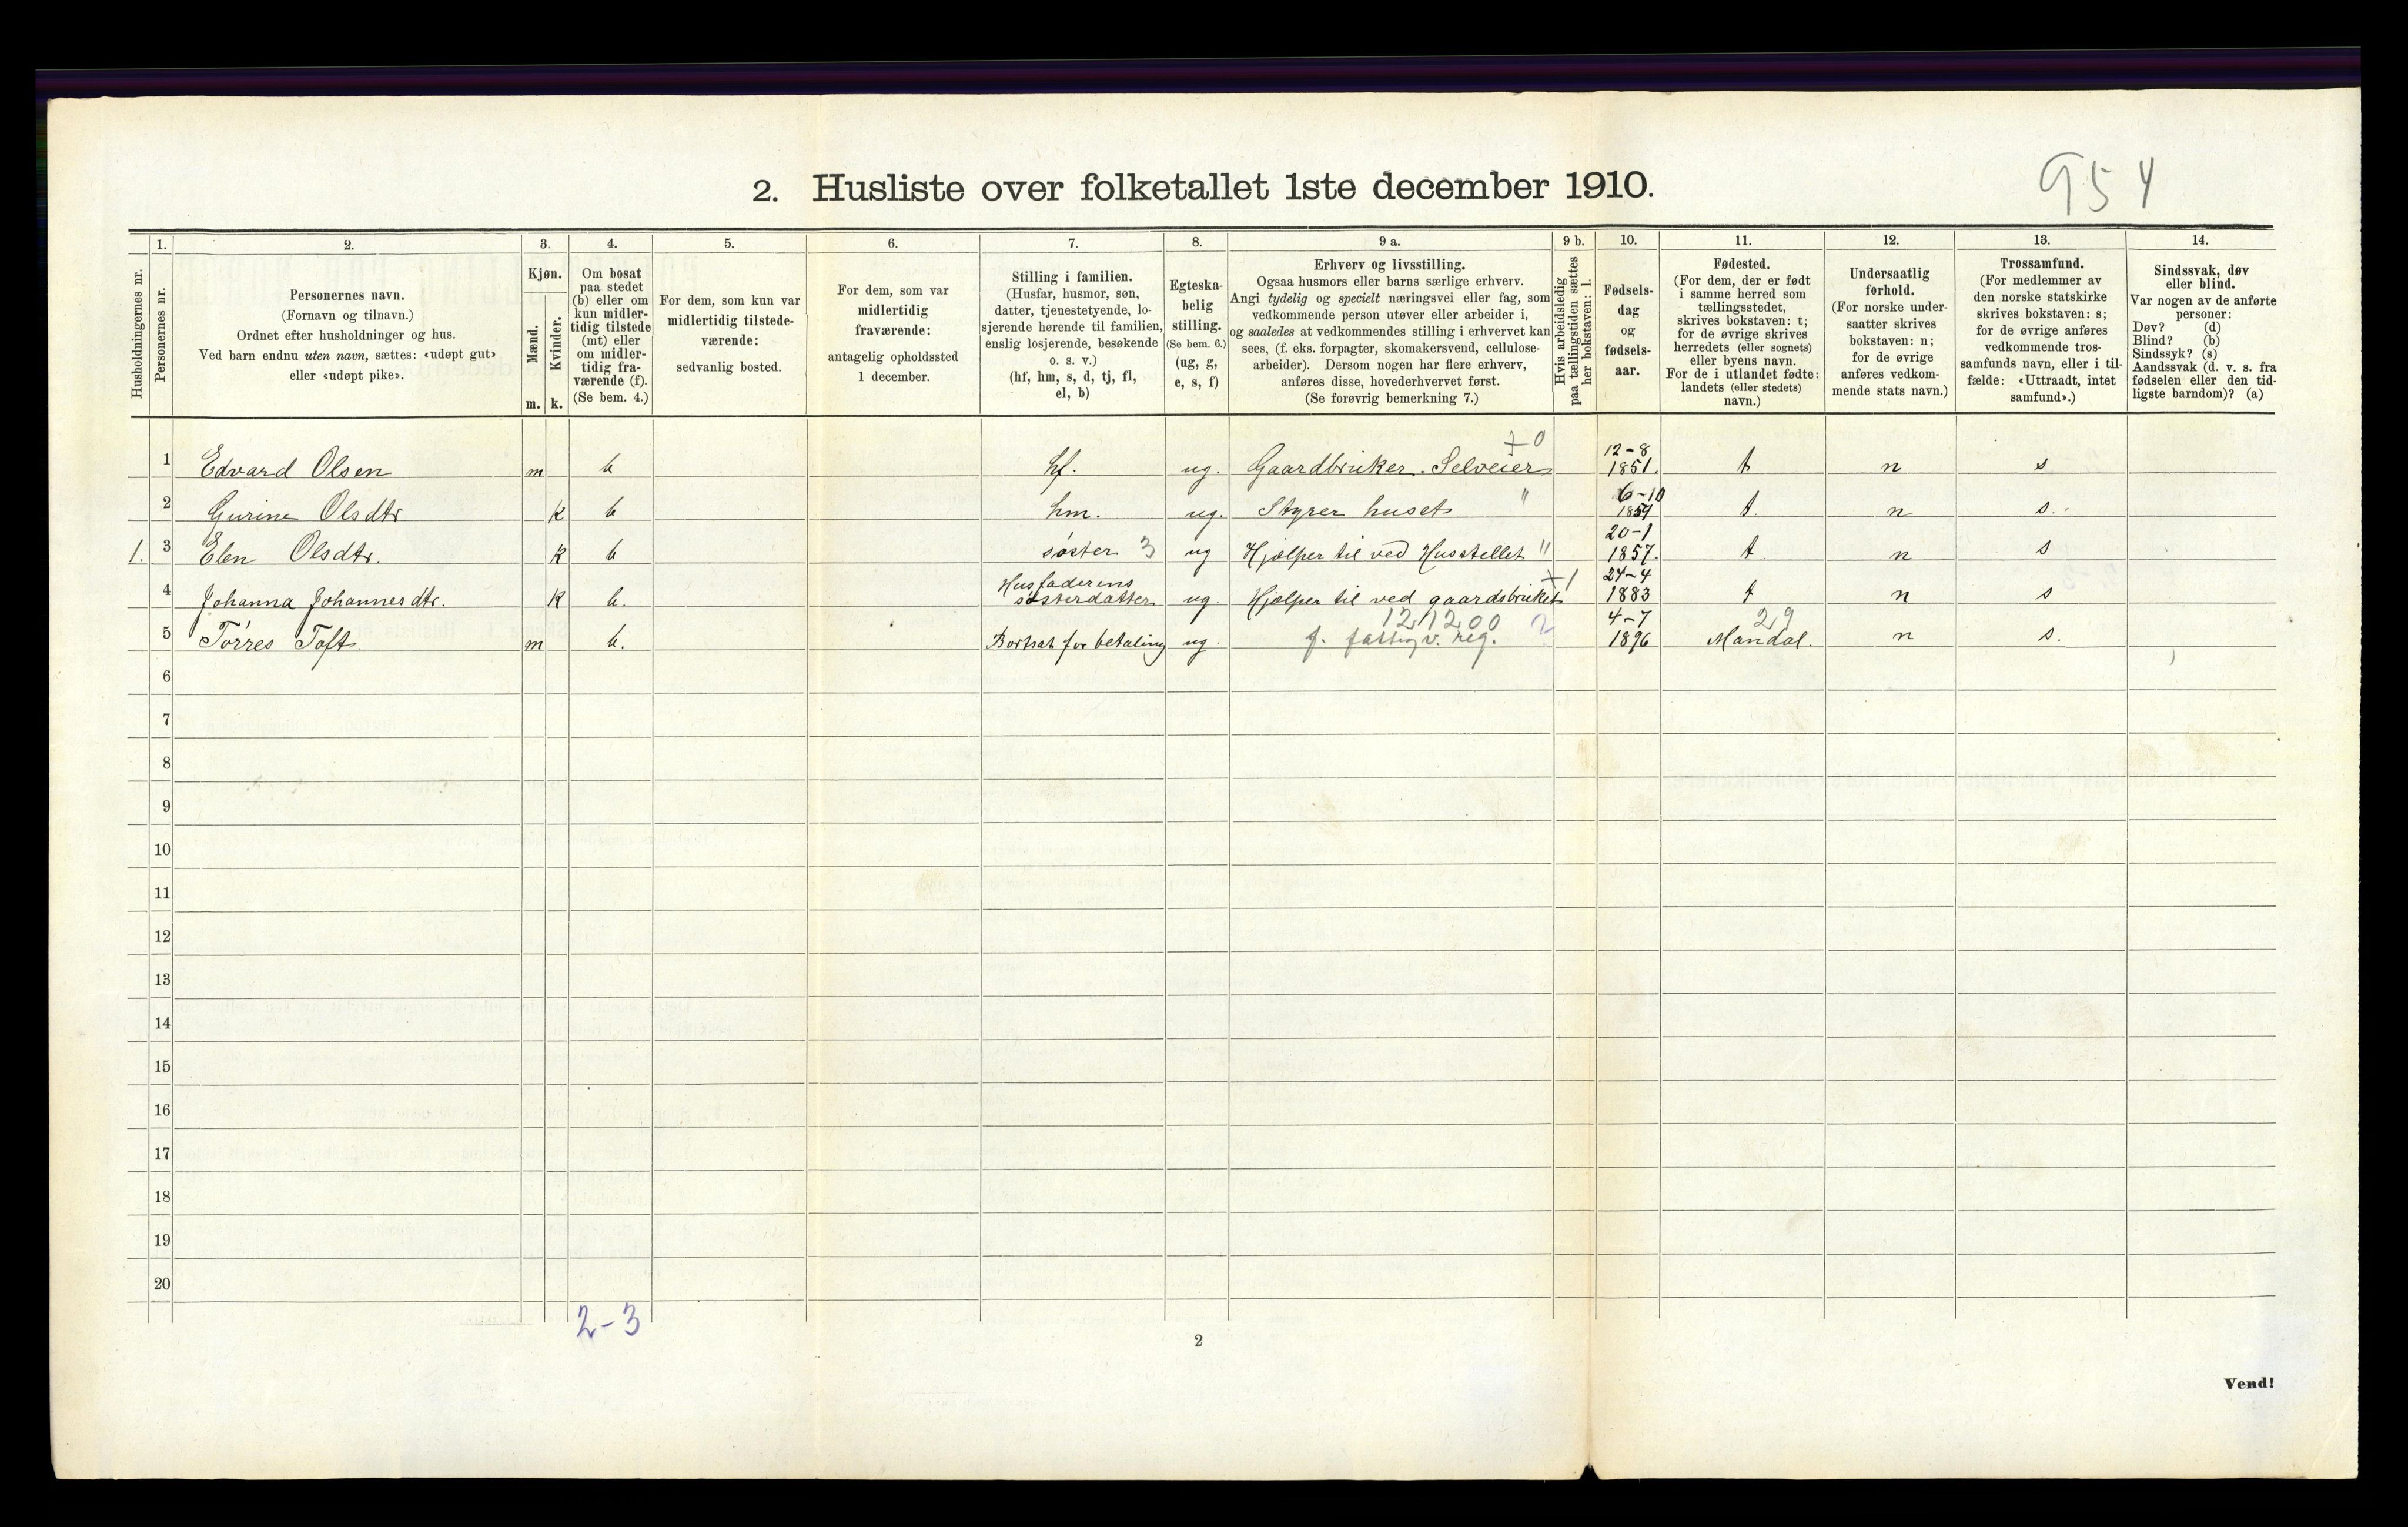 954
2. Husliste over folketallet 1ste december 1910.
Husholdningernes nr.
1.
Personernes nr.
2.
Personernes navn.
(Fornavn og tilnavn.)
Ordnet efter husholdninger og hus.
Ved barn endnu uten navn, sættes: «udøpt gut»
eller «udøpt pike».
3.
Kjøn.
Mænd.
Kvinder.
m. k.
4.
Om bosat
paa stedet
(b) eller om
kun midler-
tidig tilstede
(mt) eller
om midler-
tidig fra-
værende (f).
(Se bem. 4.)
5.
For dem, som kun var
midlertidig tilstede-
værende:
sedvanlig bosted.
6.
For dem, som var
midlertidig
fraværende:
antagelig opholdssted
1 december.
7.
Stilling i familien.
(Husfar, husmor, søn,
datter, tjenestetyende, lo-
sjerende hørende til familien,
enslig losjerende, besøkende
o. s. v.)
(hf, hm, s, d, tj, fl,
el, b)
8.
Egteska-
belig
stilling.
(Se bem. 6.)
(ug, g,
e, s, f)
9 a.
Erhverv og livsstilling.
Ogsaa husmors eller barns særlige erhverv.
Angi tydelig og specielt næringsvei eller fag, som
vedkommende person utøver eller arbeider i,
og saaledes at vedkommendes stilling i erhvervet kan
sees, (f. eks. forpagter, skomakersvend, cellulose-
arbeider). Dersom nogen har flere erhverv,
anføres disse, hovederhvervet først.
(Se forøvrig bemerkning 7.)
9 b.
Hvis arbeidsledig
paa tællingstiden sættes
her bokstaven: l.
10.
Fødsels-
dag
og
fødsels-
aar.
11.
Fødested.
(For dem, der er født
i samme herred som
tællingsstedet,
skrives bokstaven: t;
for de øvrige skrives
herredets (eller sognets)
eller byens navn.
For de i utlandet fødte:
landets (eller stedets)
navn.)
12.
Undersaatlig
forhold.
(For norske under-
saatter skrives
bokstaven: n;
for de øvrige
anføres vedkom-
mende stats navn.)
13.
Trossamfund.
(For medlemmer av
den norske statskirke
skrives bokstaven: s;
for de øvrige anføres
vedkommende tros-
samfunds navn, eller i til-
fælde: «Uttraadt, intet
samfund».)
14.
Sindssvak, døv
eller blind.
Var nogen av de anførte
personer:
Døv? (d)
Blind? (b)
Sindssyk? (s)
Aandssvak (d. v. s. fra
fødselen eller den tid-
ligste barndom)? (a)
1 Edvard Olsen m b hf. ug. Gaardbruker. Selveier 12-8 1851. t n s
2 Gurine Olsdtr k b hm. ug. Styrer huset " 6-10 1854 t. n s.
1. 3 Elen Olsdtr. k b søster 3 ug Hjælper til ved Husstellet " 20-1 1857. t n s
4 Johanna Johannesdtr. k b. Husfaderens søsterdatter ug. Hjælper til ved gaardsbruket 24-4 1883 t n s
5 Tørres Toft m b. Bortsat for betaling ug. 121200 2 4-7 1896 29 Mandal. n s.
6
7
8
9
10
11
12
13
14
15
16
17
18
19
20
2-3
2
Vend!